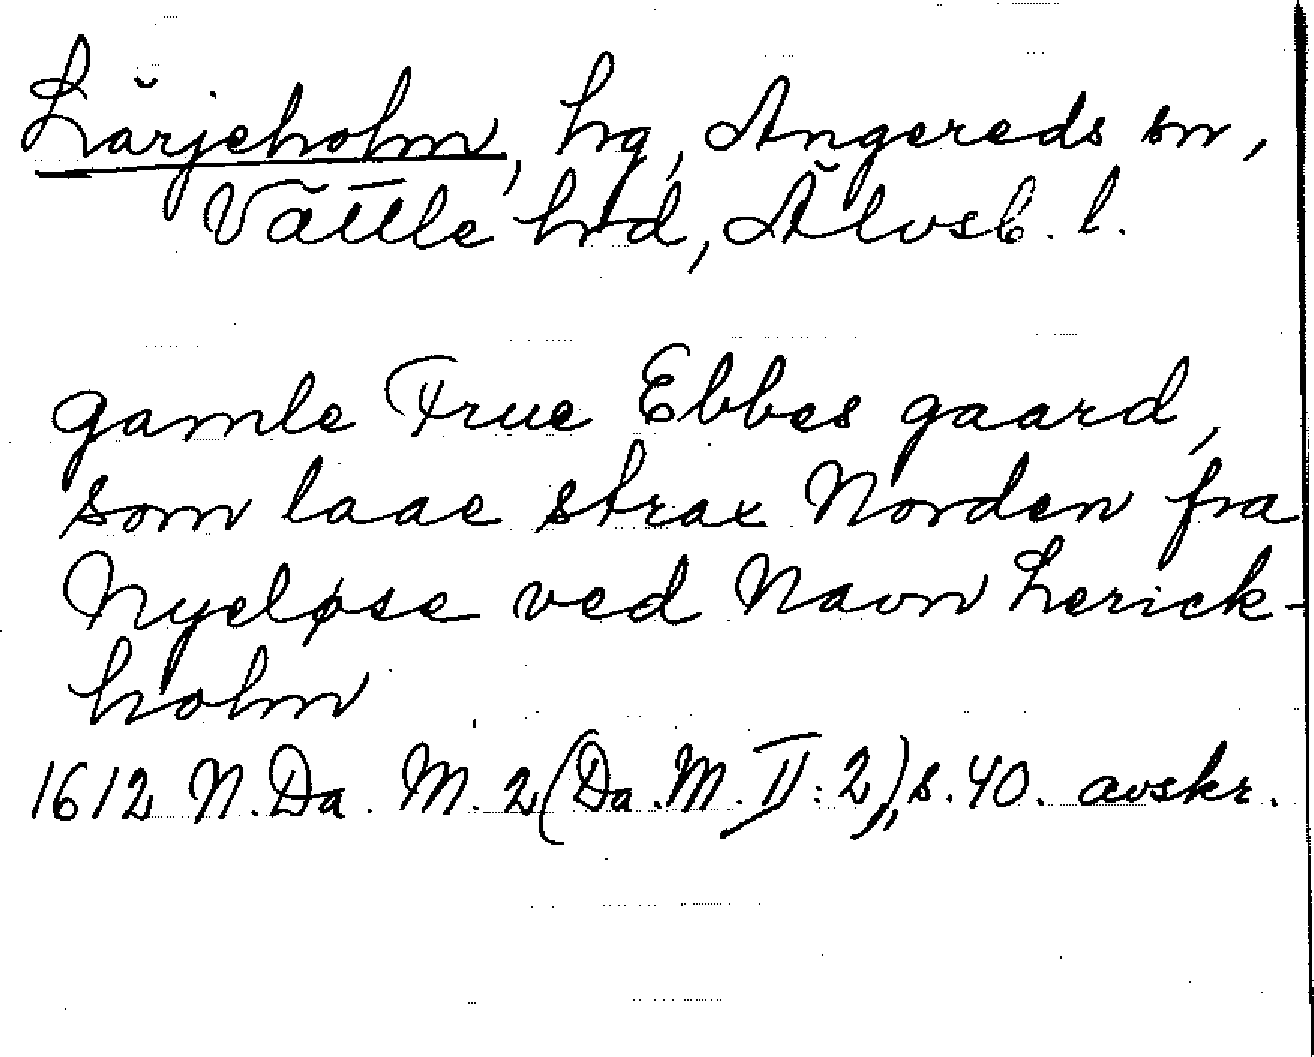 Lärjeholm, hg, Angereds sn,
Vättle hrd, Älvsb. l.
gamle Frue Ebbes gaard,
som laae strax Norden fra
Nyeløse ved Navn Lerick-
holm
1612 N. Da. M. 2 (Da. M. II: 2), s. 40. avskr.